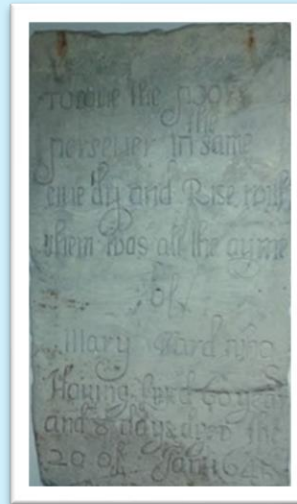 To loue the poore
the
perseuer in same
liue dy and Rise with
them was all the ayme
of
Mary Ward who
Hauing liued 60 years
and 8 days dyed the
20 of Jan 1645